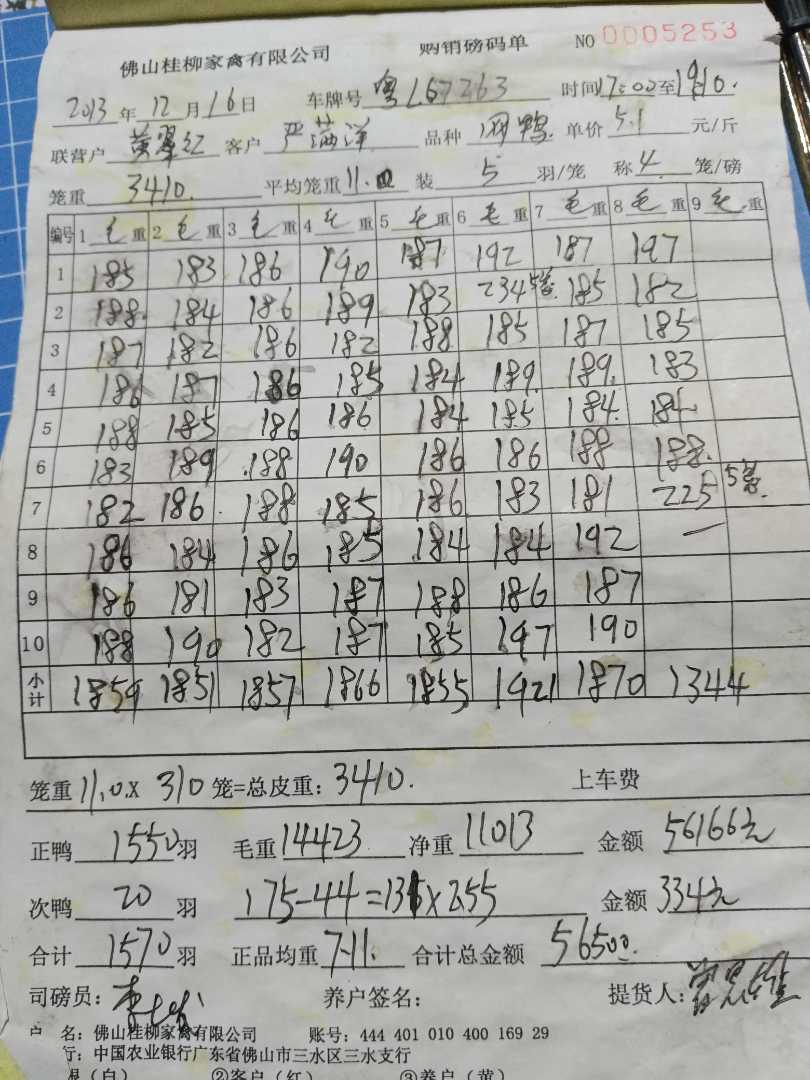 佛山桂柳家禽有限公司 购销磅码单 NO 0005253
2013年12月16日 车牌号 粤L67263 时间17:00至19:10.
联营户 黄翠红 客户 严满洋 品种 网鸭 单价 5.1 元/斤
笼重 3410. 平均笼重 11.0 装 5 羽/笼 称 4. 笼/磅
编号 1毛重 2毛重 3毛重 4毛重 5毛重 6毛重 7毛重 8毛重 9毛重
1 185 183 186 190 187 192 187 197
2 188. 184 186 189 183 234 5笼. 185 182
3 187 182 186 182 188 185 187 185
4 186 187 186 185 184 189. 189. 183
5 188 185 186 186 184 185 184. 184
6 183 189 188 190 186 186 188 188.
7 182 186 188 185 186 183 181 225 5笼.
8 186 184 186 185 184 184 192 一
9 186 181 183 187 188 186 187
10 188 190 182 187 185 197 190
小计 1859 1851 1857 1866 1855 1921 1870 1344
笼重 11.0.x 310 笼=总皮重: 3410. 上车费
正鸭 1550羽 毛重 14423 净重 11013 金额 56166元
次鸭 20 羽 175-44=131x2.55 金额 334元
合计 1570羽 正品均重 7.11. 合计总金额 56500.
司磅员: 养户签名: 提货人:
户 名: 佛山桂柳家禽有限公司 账号: 444 401 010 400 169 29
行: 中国农业银行广东省佛山市三水区三水支行
根(白) ②客户(红) ③养户(黄)